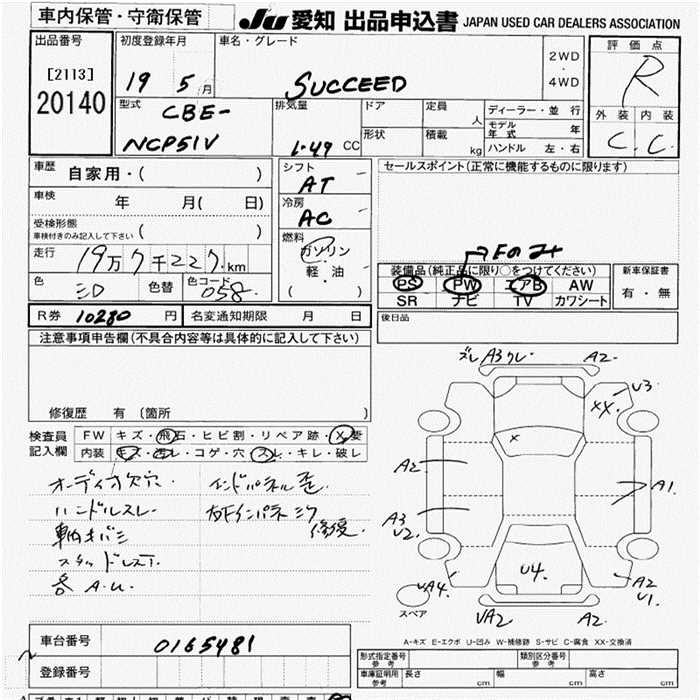 車内保管・守衛保管
JU 愛知 出品申込書 JAPAN USED CAR DEALERS ASSOCIATION
出品番号
[2113]
20140
初度登録年月
19 5月
車名・グレード
SUCCEED
2WD
・
4WD
評価点
R
外装 内装
C. C.
型式
CBE-
NCP51V
排気量
1.49 CC
ドア
定員
人
形状
積載
kg
ディーラー・並行
モデル年式 年
ハンドル 左・右
車歴 自家用・( )
車検 年 月( 日)
受検形態
車検付きのみ記入して下さい ( )
走行 19万7千227.km
色 シロ 色替 色コード 058.
シフト
AT
冷房
AC
燃料
ガソリン
軽・油
( )
セールスポイント(正常に機能するものに限ります)
Fのみ
装備品(純正品に限り○をつけてください)
PS PW エアB AW
SR ナビ TV カワシート
新車保証書
有・無
R券 10280 円 名変通知期限 月 日
後日品
注意事項申告欄(不具合内容等は具体的に記入して下さい)
修復歴 有(箇所 )
検査員 記入欄
FW キズ・飛石・ヒビ割・リペア跡・X要
内装 キズ・汚レ・コゲ・穴・スレ・キレ・破レ
オーディオ欠穴
ハンドルスレ
スタッドレス
各 A.U.
ズレ A3 ワレ A2
U3
XX
X
A2
A1
A3
U2
UA4
U4.
A2
U1
UA2 A2
スペア
A-キズ E-エクボ U-凹み W-補修跡 S-サビ C-腐食 XX-交換済
車台番号 0165481
登録番号
形式指定番号 参考 類別区分番号 参考
車庫証明用 参考 長さ cm 幅 cm 高さ cm